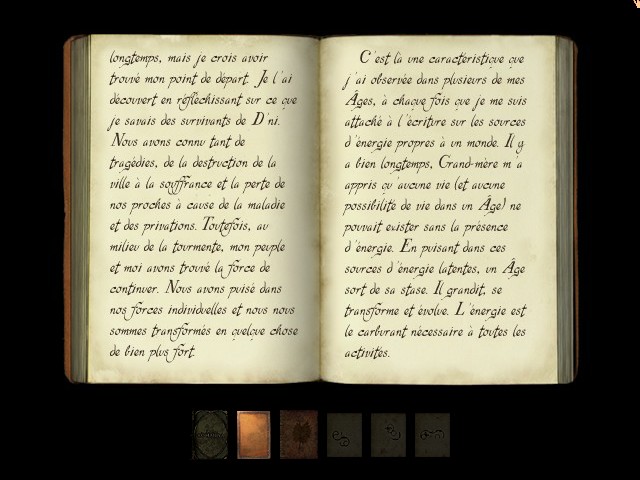 longtemps, mais je crois avoir
trouvé mon point de départ. Je l'ai
découvert en réfléchissant sur ce que
je savais des survivants de D'ni.
Nous avons connu tant de
tragédies, de la destruction de la
ville à la souffrance et la perte de
nos proches à cause de la maladie
et des privations. Toutefois, au
milieu de la tourmente, mon peuple
et moi avons trouvé la force de
continuer. Nous avons puisé dans
nos forces individuelles et nous nous
sommes transformés en quelque chose
de bien plus fort.
C'est là une caractéristique que
j'ai observée dans plusieurs de mes
Âges, à chaque fois que je me suis
attaché à l'écriture sur les sources
d'énergie propres à un monde. Il y
a bien longtemps, Grand-mère m'a
appris qu'aucune vie (et aucune
possibilité de vie dans un Âge) ne
pouvait exister sans la présence
d'énergie. En puisant dans ces
sources d'énergie latentes, un Âge
sort de sa stase. Il grandit, se
transforme et évolue. L'énergie est
le carburant nécessaire à toutes les
activités.